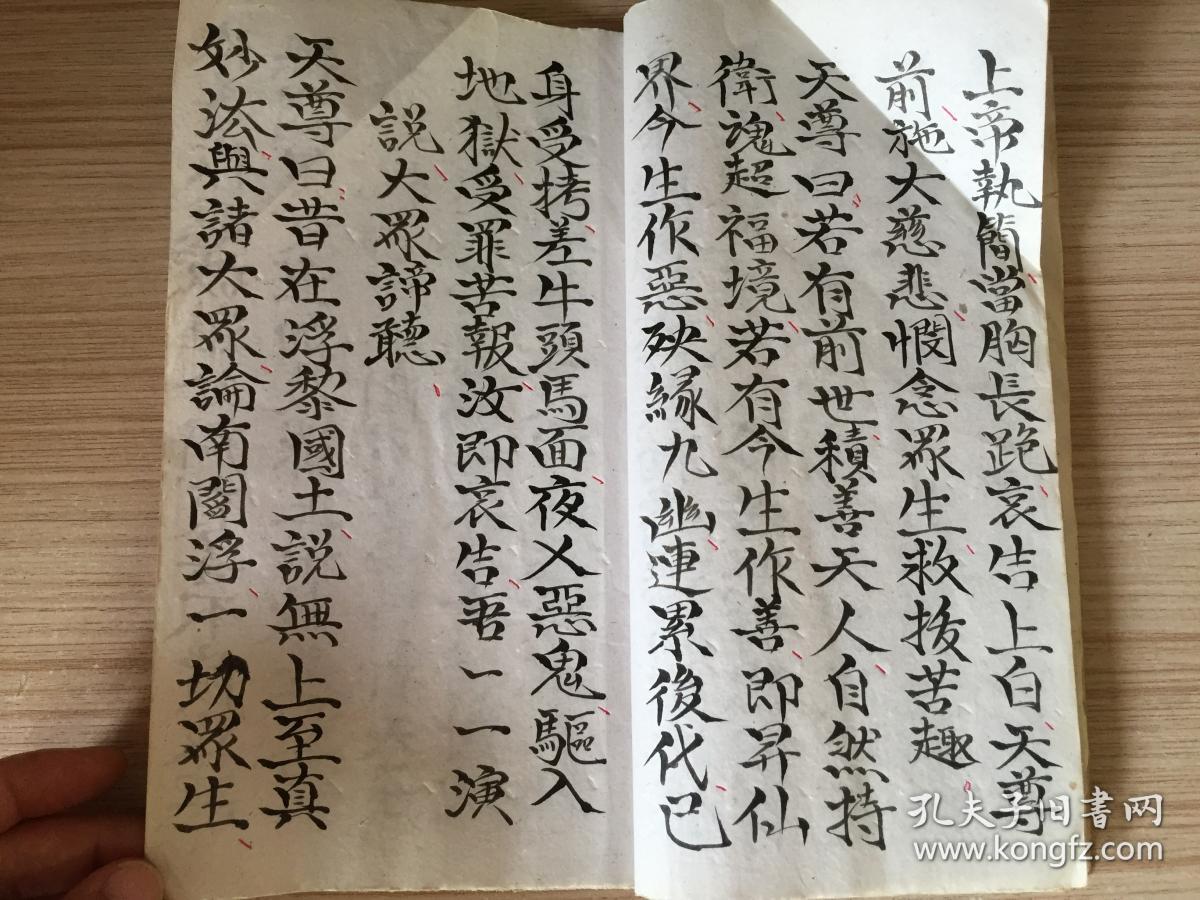 上帝執簡當胸長跪哀告上白天尊
前施大慈悲憫念眾生救拔苦趣
天尊曰若有前世積善天人自然持
衛魂超福境若有今生作善即昇仙
界今生作惡殃緣九幽連累後代已
身受拷差牛頭馬面夜乂惡鬼驅入
地獄受罪苦報汝即哀告吾一一演
説大眾諦聽
天尊曰昔在浮黎國土説無上至真
妙法與諸大眾論南閻浮一切眾生
孔夫子旧書网
www.kongfz.com